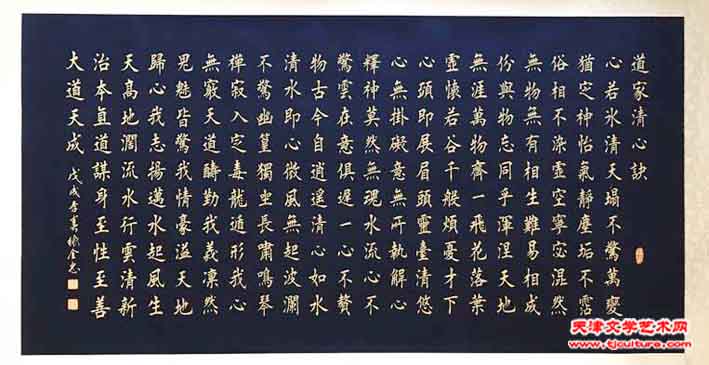 道家清心訣
心若氷清天塌不驚萬變
猶定神怡氣靜塵垢不霑
俗相不染靈空寧宓混然
無物無有相生難易相成
份與物忘同乎渾涅天地
無涯萬物齊一飛花落葉
靈懷若谷千般煩憂才下
心頭即展眉頭靈臺清悠
心無掛礙意無所執解心
釋神莫然無魂水流心不
驚雲在意俱遲一心不贅
物古今自逍遥清心如水
清水即心微風無起波瀾
不驚幽篁獨坐長嘯鳴琴
禪寂入定毒龍遁形我心
無竅天道疇勤我義凛然
鬼魅皆驚我情豪溢天地
歸心我志揚邁水起風生
天高地濶流水行雲清新
治本直道謀身至性至善
大道天成
戊戌
天津文学艺术网
www.tjculture.com